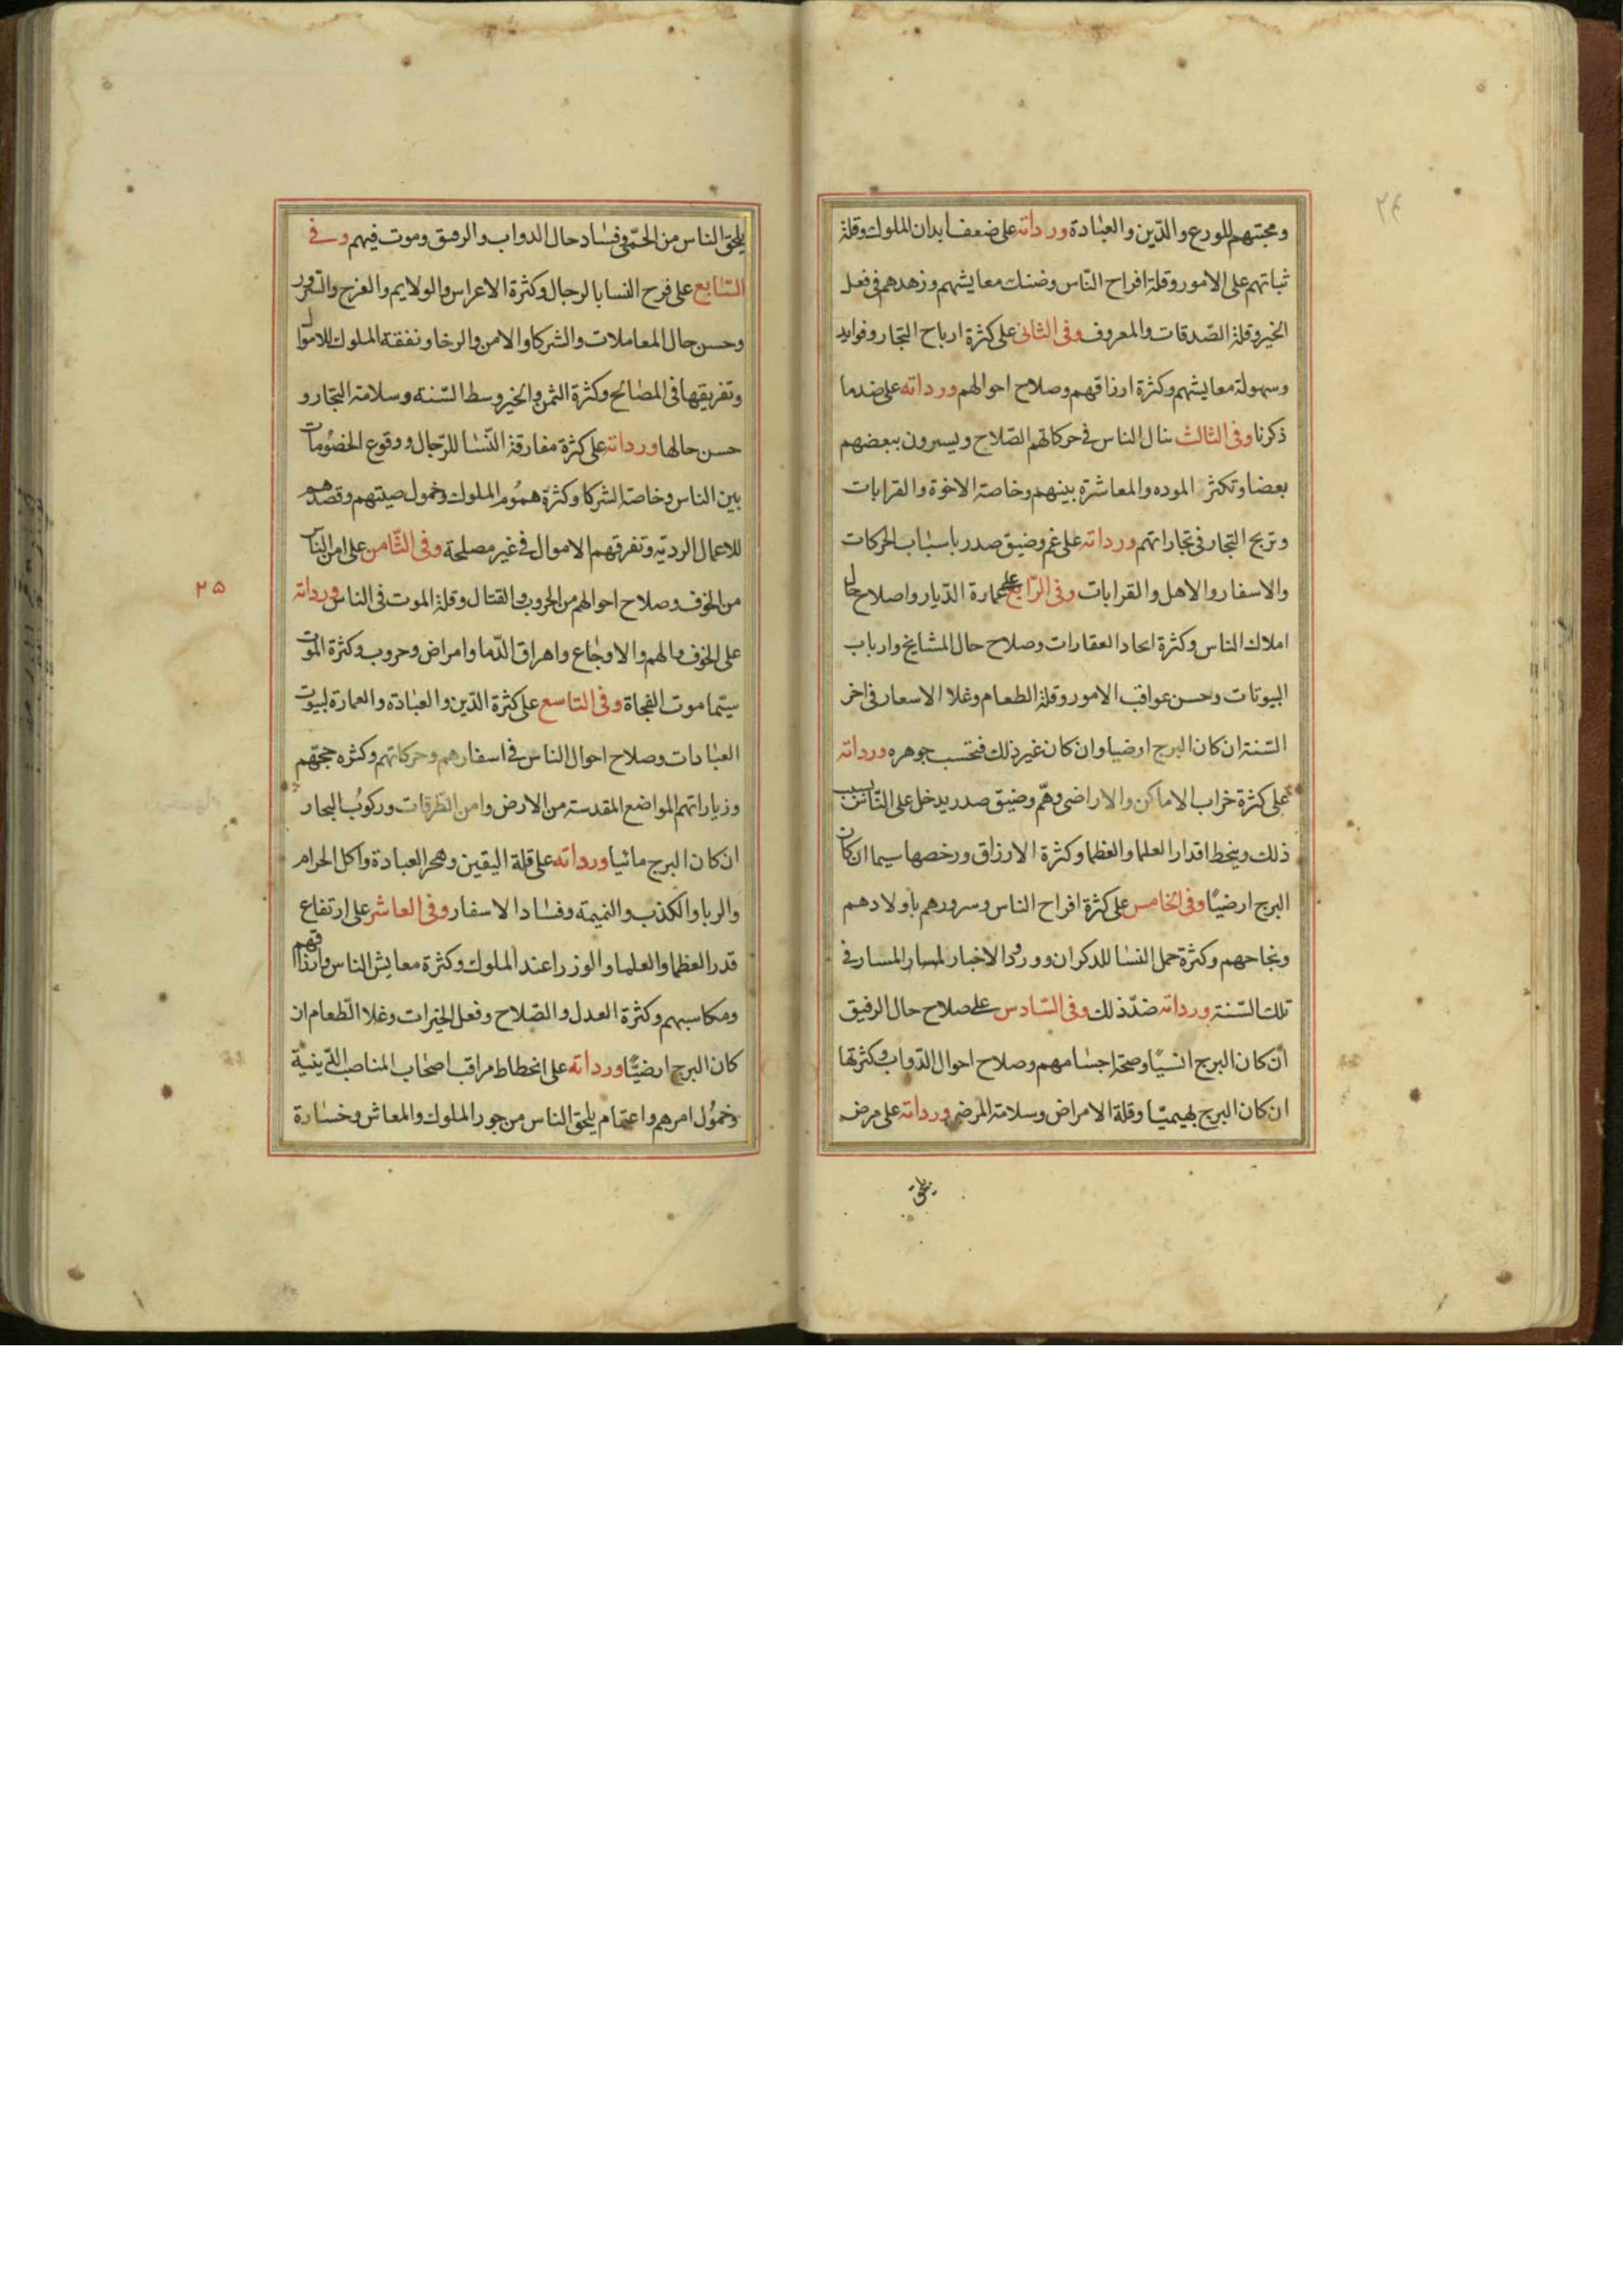 ٢٤
ومحبتهم للورع والدّين والعبادة ورداته على ضعف ابدان الملوك وقلة
ثباتهم على الامور وقلة افراح النّاس وضنك معايشهم وزهدهم فى فعل
الخير وقلة الصّدقات والمعروف وفى الثانى على كثرة ارباح التجار وفوايد
وسهولة معايشهم وكثرة ارزاقهم وصلاح احوالهم ورداته على ضد ما
ذكرنا وفى الثالث ينال الناس فى حركاتهم الصّلاح ويسيرون ببعضهم
بعضا وتكثر الموده والمعاشرة بينهم وخاصة الاخوة والقرابات
وتربح التجار فى تجاراتهم ورداته على غم وضيق صدر باسباب الحركات
والاسفار والاهل والقرابات وفى الرّابع على عمارة الدّيار واصلاح حال
املاك الناس وكثرة اتحاد العقارات وصلاح حال المشايخ وارباب
البيوتات وحسن عواقب الامور وقلة الطعام وغلا الاسعار فى اخر
السّنة ان كان البرج ارضيا وان كان غير ذلك فتحسب جوهره ورداته
على كثرة خراب الاماكن والاراضى وهّم وضيق صدر يدخل على النّاس بسبب
ذلك وينحط اقدار العلما والعظما وكثرة الارزاق ورخصها سيما ان كان
البرج ارضيًا وفى الخامس على كثرة افراح الناس وسرورهم باولادهم
ونجاحهم وكثرة حمل النسا للذكران وورود الاخبار لمسار المسار فى
تلك السّنة ورداته ضدّ ذلك وفى السّادس على صلاح حال الرفيق
ان كان البرج انسيًا وصحة اجسامهم وصلاح احوال الدّواب وكثرتها
ان كان البرج بهيميّا وقلة الامراض وسلامة المرضى ورداته على مرض
يلحق
يلحق الناس من الحمّى وفساد حال الدواب والرقيق وموت فيهم وفى
السّابع على فرح النسا بالرجال وكثرة الاعراس والولايم والفرح والسّرور
وحسن حال المعاملات والشركا والامن والرخا ونفقة الملوك للاموال
وتفريقها فى المصالح وكثرة الثمن والخير وسط السّنة وسلامة التجار و
حسن حالها ورداته على كثرة مفارقة النّسا للرّجال ووقوع الخصُومات
بين الناس وخاصة الشركا وكثرة همُوم الملوك وخمول صيتهم وقصدهم
للاعمال الرديّه وتفرقهم الاموال فى غير مصلحة وفى الثّامن على امن النّاس
من الخوف وصلاح احوالهم من الحروب والقتال وقلة الموت فى الناس ورداته
٢٥
على الخوف والهم والاوجاع واهراق الدّما وامراض وحروب وكثرة الموت
سيّما موت الفجاة وفى التاسع على كثرة الدّين والعباده والعمارة لبيوت
العبادات وصلاح احوال الناس فى اسفارهم وحركاتهم وكثره حجتهم
وزياراتهم المواضع المقدسة من الارض وامن الطّرقات وركوُب البحار
ان كان البرج مائيا ورداته على قلة اليقين وهجر العبادة واكل الحرام
والربا والكذب والنميمة وفساد الاسفار وفى العاشر على ارتفاع
قدر العظما والعلما والوزرا عند الملوك وكثرة معايش الناس وارزاقهم
ومكاسبهم وكثرة العدل والصّلاح وفعل الخيرات وغلا الطّعام ان
كان البرج ارضيًّا ورداته على انحطاط مراقب اصحاب المناصب الدّينية
وخمُول امرهم واغتمام يلحق الناس من جور الملوك والمعاش وخسارة